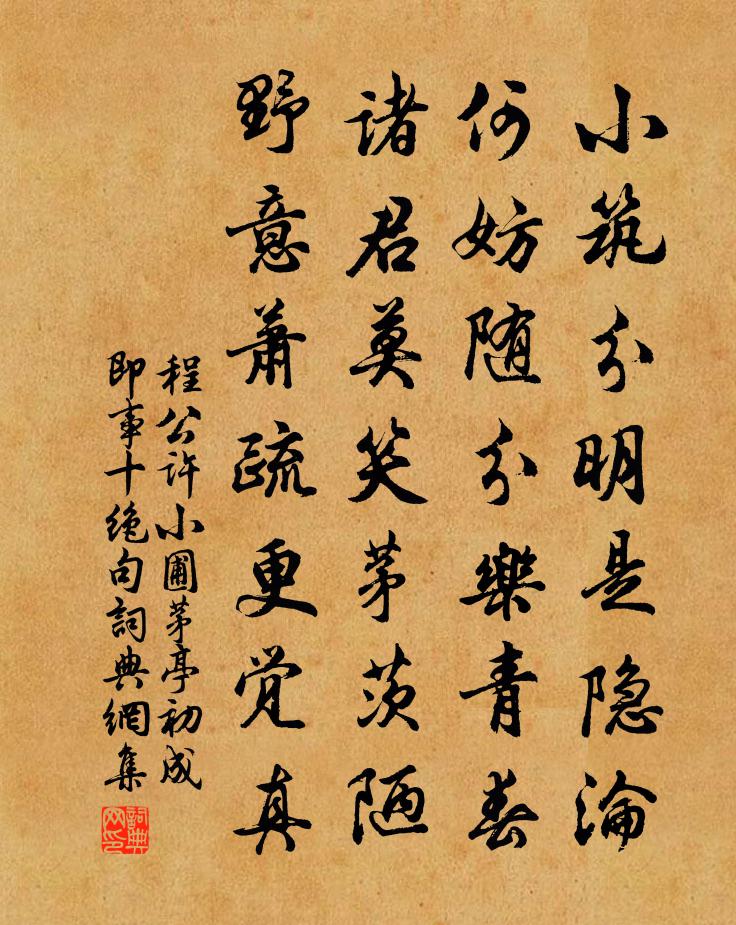 小筑分明是隐淪
何妨随分樂青春
诸君莫笑茅茨陋
野意蕭疏更觉真
程公许小圃茅亭初成
即事十绝句詞典網集
詞典网印